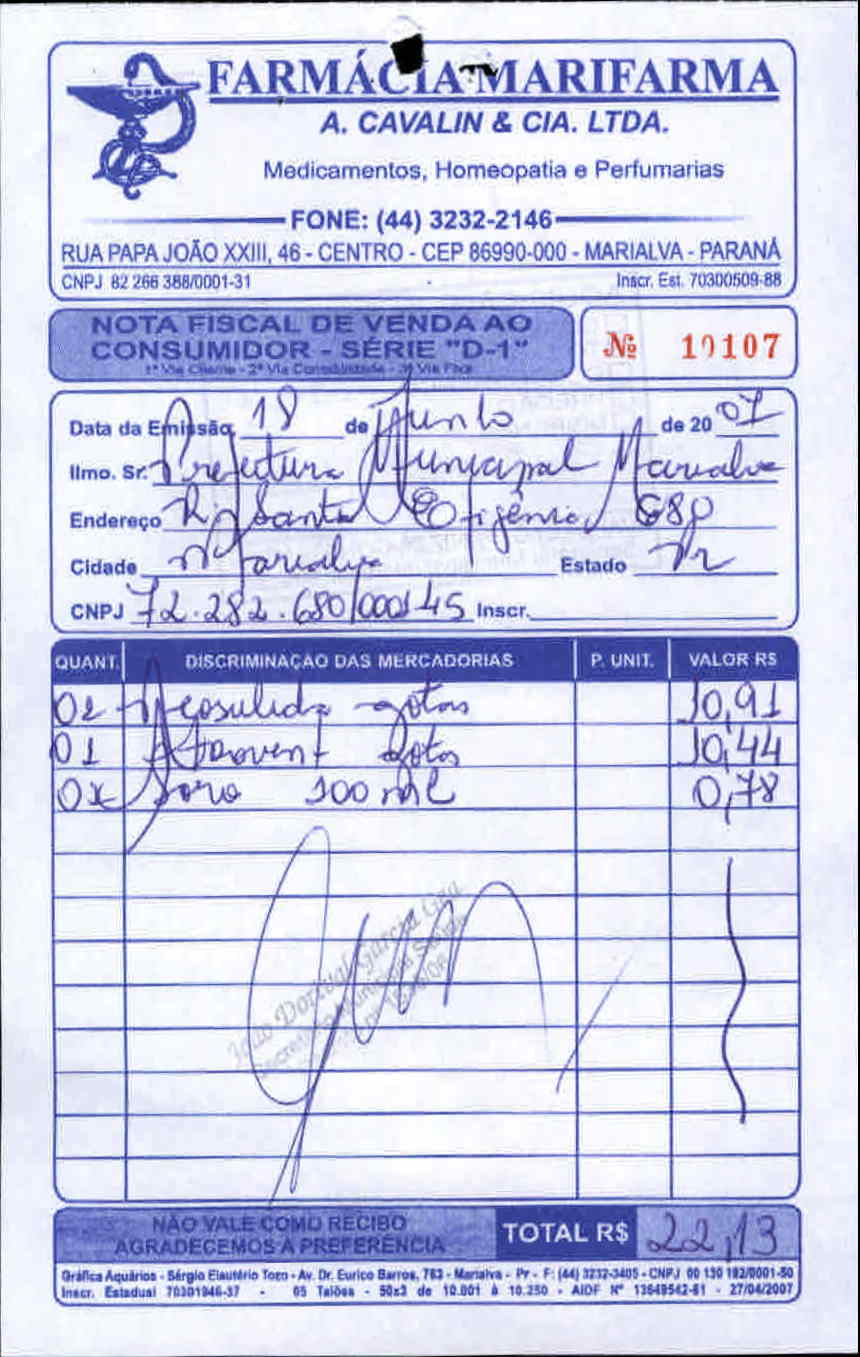 FARMÁCIA MARIFARMA
A. CAVALIN & CIA. LTDA.
Medicamentos, Homeopatia e Perfumarias
FONE: (44) 3232-2146
RUA PAPA JOÃO XXIII, 46 - CENTRO - CEP 86990-000 - MARIALVA - PARANÁ
CNPJ 82 266 388/0001-31 Inscr. Est. 70300509-88
NOTA FISCAL DE VENDA AO
CONSUMIDOR - SÉRIE "D-1"
Nº 10107
1ª Via Cliente - 2ª Via Contabilidade - 3ª Via Fixa
Data da Emissão 18 de Junho de 20 07
Ilmo. Sr. Prefeitura Municipal Marialva
Endereço R. Santa Efigênia 680
Cidade Marialva Estado Pr
CNPJ 72.282.680/0001 45 Inscr.
QUANT. DISCRIMINAÇÃO DAS MERCADORIAS P. UNIT. VALOR R$
02 Neosulida gotas 10,91
01 Atrovent gotas 10,44
Soro 100 ml 0,78
João Dorival Garcia
NÃO VALE COMO RECIBO
AGRADECEMOS A PREFERÊNCIA
TOTAL R$ 22,13
Gráfica Aquários - Sérgio Eleutério Tozo - Av. Dr. Eurico Barros, 763 - Marialva - Pr - F: (44) 3232-3405 - CNPJ 00 130 192/0001-50
Inscr. Estadual 70301946-37 - 05 Talões - 50x3 de 10.001 à 10.250 - AIDF Nº 13649542-61 - 27/04/2007